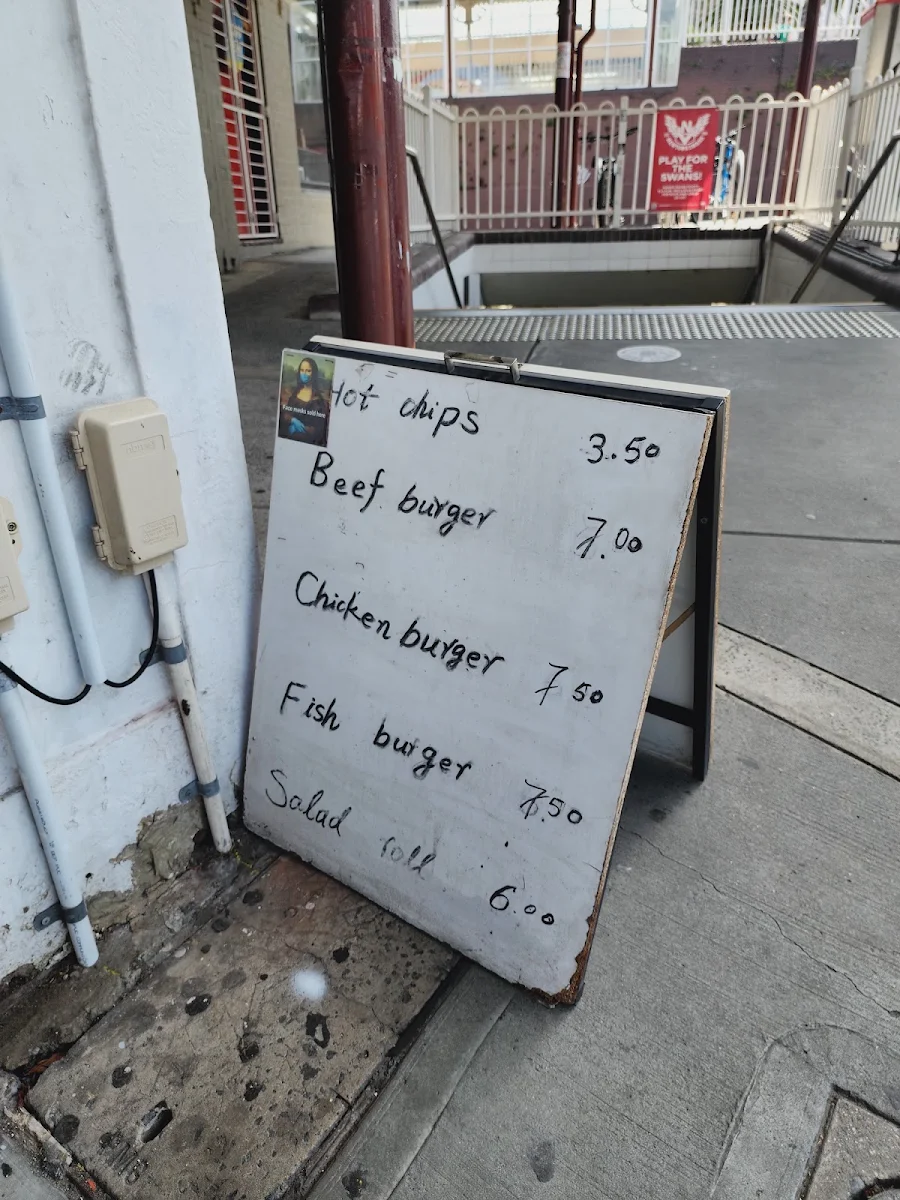 PLAY FOR
THE
SWANS!
Face masks sold here
Hot chips 3.50
Beef burger 7.00
Chicken burger 7 50
Fish burger 7.50
Salad roll 6.00